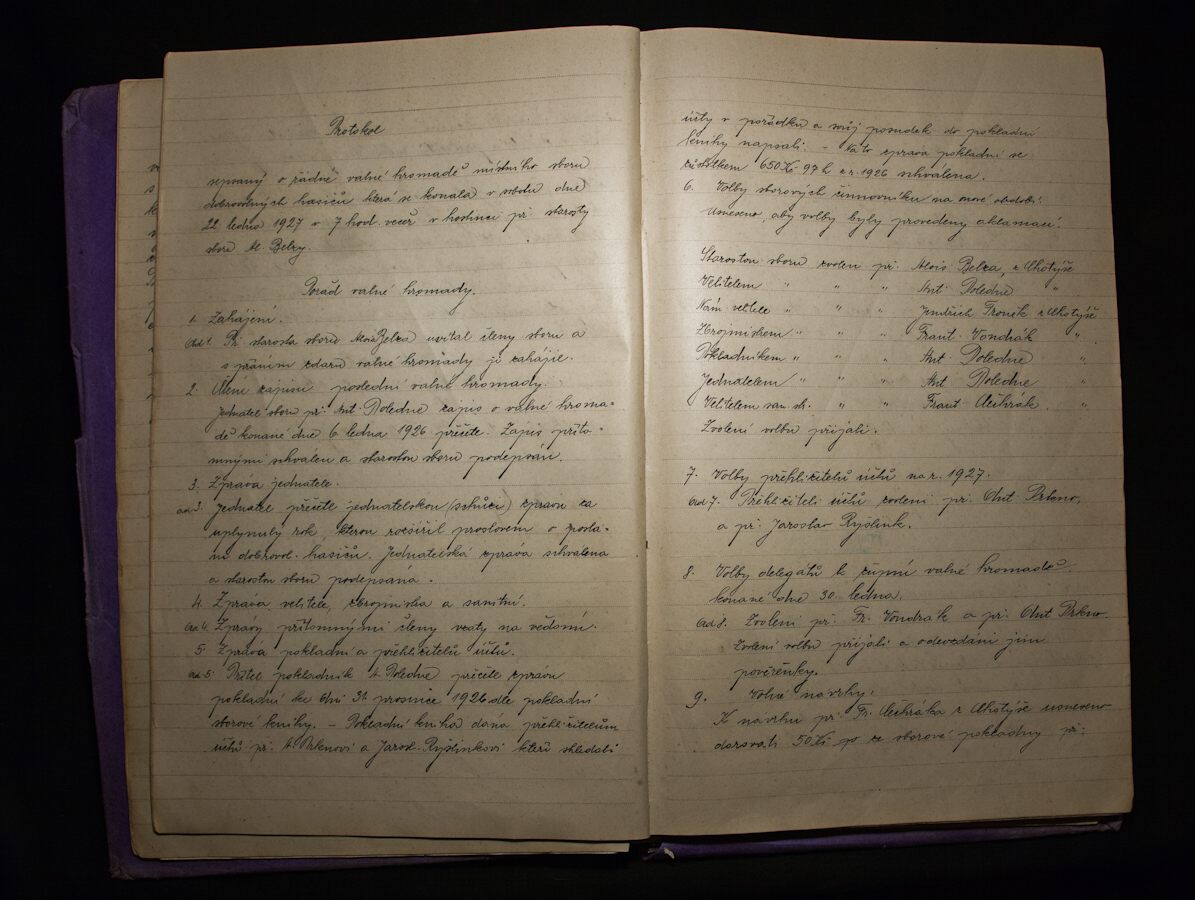 Protokol
sepsaný o řádné valné hromadě místního sboru
dobrovolných hasičů která se konala v sobotu dne
22 ledna 1927 v 7 hod. večer v hostinci př. starosty
sboru Al. Belzy.
Pořad valné hromady.
1. Zahájení.
Ad 1. Př. starosta sboru Alois Belza uvítal členy sboru a
s přáním zdaru valné hromady ji zahájil.
2. Čtení zápisu poslední valné hromady.
Jednatel sboru př. Ant. Poledne zápis o valné hroma-
dě konané dne 6 ledna 1926 přečte. Zápis příto-
mnými schválen a starostou sboru podepsán.
3. Zpráva jednatele.
ad 3. Jednatel přečte jednatelskou (schůzi) zprávu za
uplynulý rok, kterou rozšířil proslovem o poslá-
ní dobrovol. hasičů. Jednatelská zpráva schválena
a starostou sboru podepsána.
4. Zpráva velitele, zbrojmistra a sanitní.
Ad 4. Zprávy přítomnými členy vzaty na vědomí.
5. Zpráva pokladní a přehlížitelů účtů.
ad 5. Přítel pokladník A. Poledne přečte zprávu
pokladní ke dni 31 prosince 1926 dle pokladní
sborové knihy. - Pokladní kniha dána přehlížitelům
účtů př. A. Prknovi a Jarosl. Ryšlinkovi kteří shledali
účty v pořádku a svůj posudek do pokladní
knihy napsali. - Na to zpráva pokladní se
zůstatkem 650 Kč 97 h z r. 1926 schválena.
6. Volby sborových činovníků na nové období.
Usneseno, aby volby byly provedeny aklamací.
Starostou sboru zvolen př. Alois Belza, z Lhotýše
Velitelem " " " Ant. Poledne "
Nám. velitele " " " Jindřich Froněk z Lhotýše
Zbrojmistrem " " " Frant. Vondrák "
Pokladníkem " " " Ant. Poledne "
Jednatelem " " " Ant. Poledne "
Velitelem sam. sb. " " Frant. "
Zvolení volbu přijali.
7. Volby přehlížitelů účtů na r. 1927.
Ad 7. Přehlížiteli účtů zvoleni př. Ant. Prkno,
a př. Jaroslav Ryšlink.
8. Volby delegátů k župní valné hromadě
konané dne 30. ledna.
Ad 8. Zvoleni př. Fr. Vondrák a př. Ant Prkno
Zvolení volbu přijali a odevzdáni jim
pověřenky.
9. Volné návrhy.
K návrhu př. Fr. z Lhotýše usneseno
darovati 50 Kč ze sborové pokladny př.